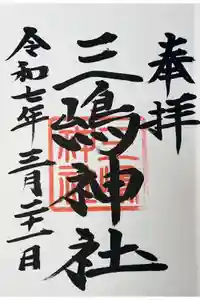 奉拝
三嶋神社
令和七年三月二十一日